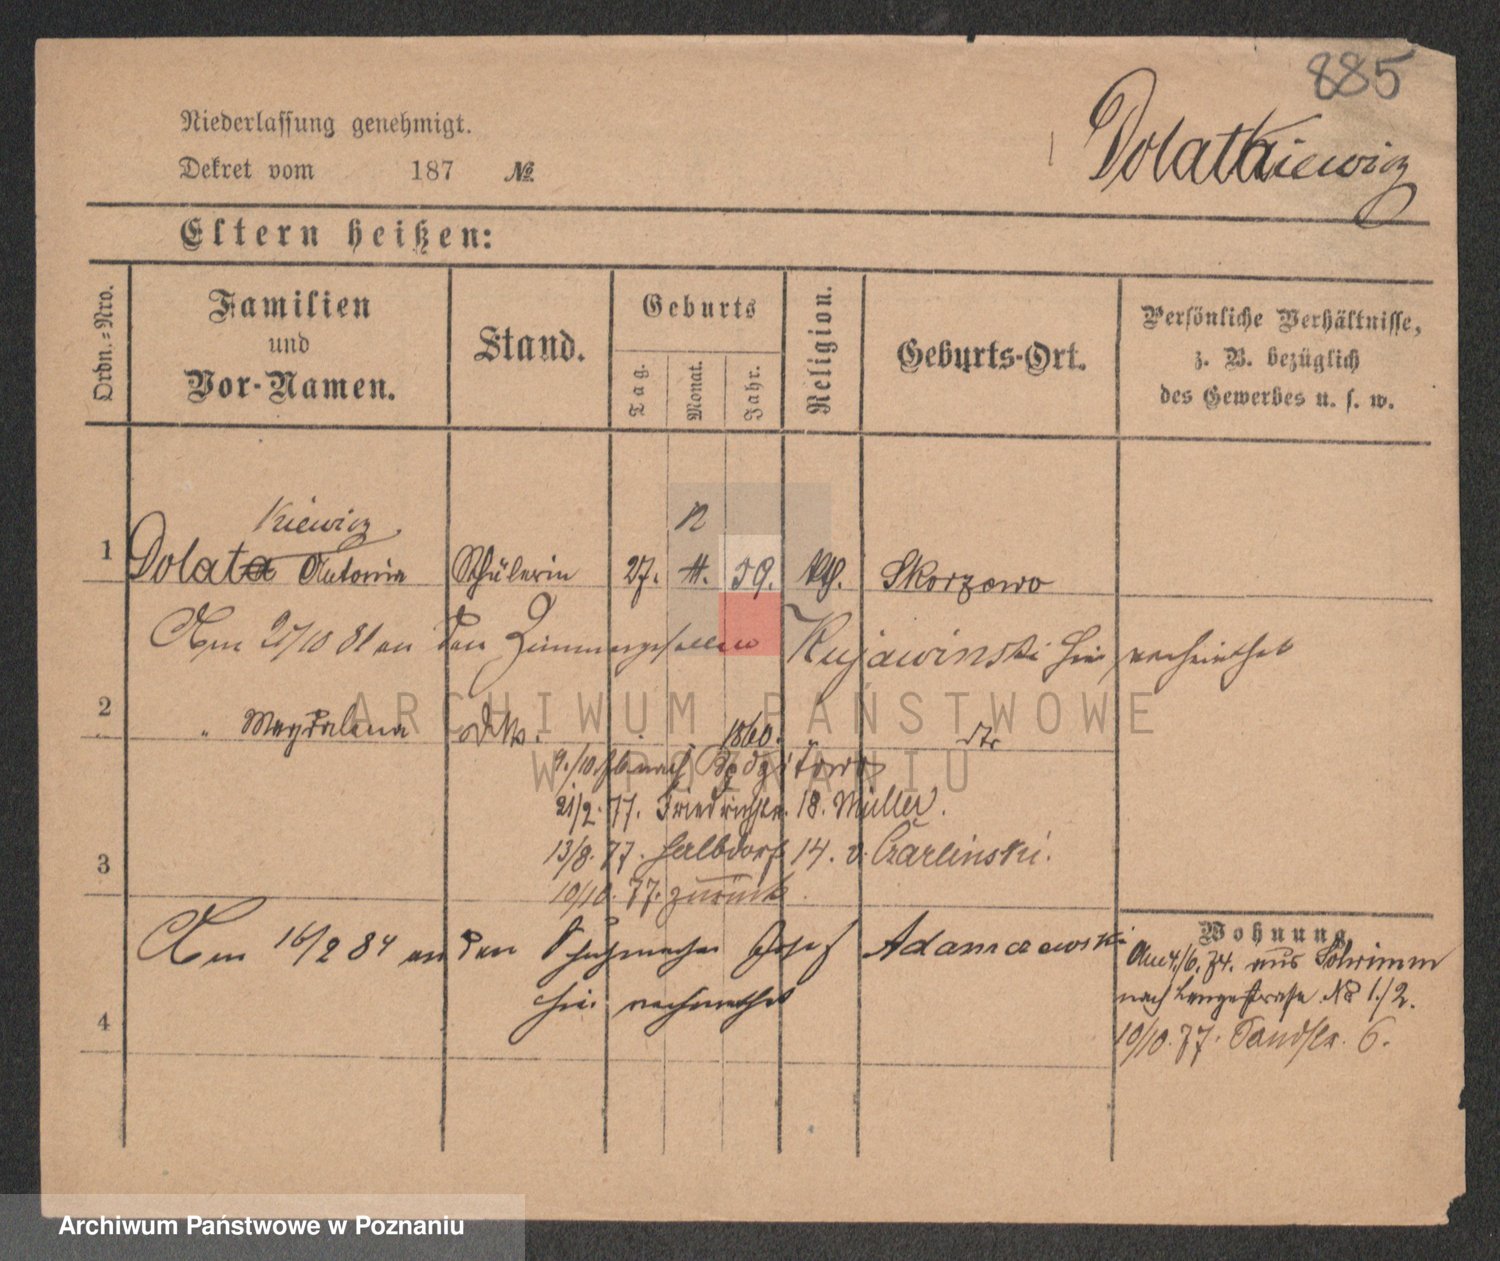 885
Niederlassung genehmigt.
Dolatkiewicz
Dekret vom 187 №
Eltern heißen:
Ordn.-Nro.
Familien
und
Vor-Namen.
Stand.
Geburts
Tag.
Monat.
Jahr.
Religion.
Geburts-Ort.
Persönliche Verhältnisse,
z. B. bezüglich
des Gewerbes u. s. w.
kiewicz
1 Dolata Antonia Schülerin 27. 59. kth. Skorzewo
Am 25/10 81 an den Zimmergesellen Kujawinski hier verheirathet
2 " Magdalena 1860. dto
nach
21/2. 77. Friedrichstr. 18. Müller.
13/8. 77. Halbdorfstr 14. v. Czarlinski.
3
10/10. 77. zurück.
Am 16/2 84 an den Schuhmacher Josef Adamczewski
hier verheirathet
4
Wohnung
Am 4/6. 74. aus Schrimm
nach Langestrasse No 1./2.
10/10. 77. Sandstr. 6.
ARCHIWUM PAŃSTWOWE
W POZNANIU
Archiwum Państwowe w Poznaniu